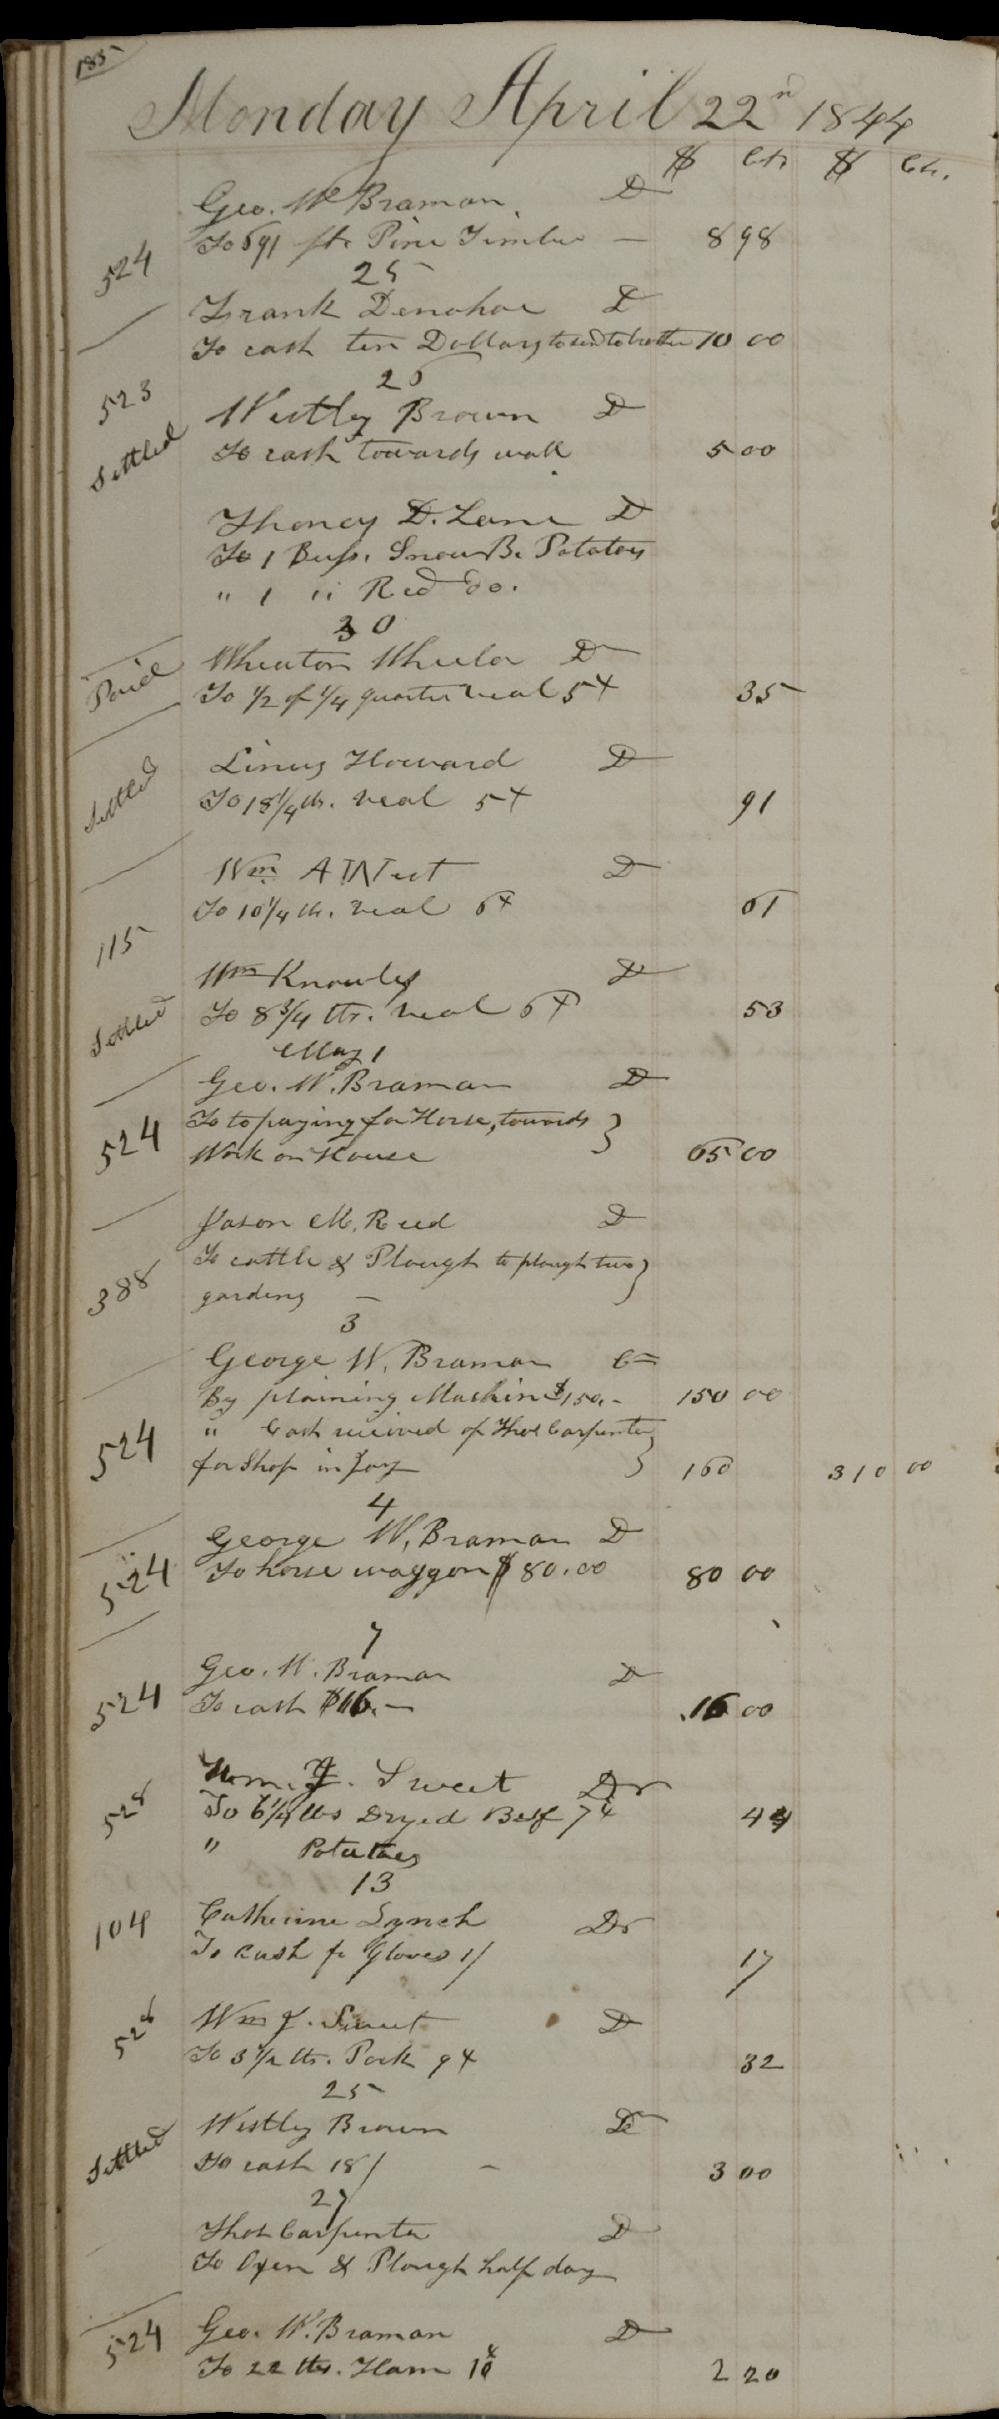 185
Monday April 22nd 1844
$ Cts $ Cts.
Geo. W Braman D
524 To 691 ft. Pine Timber — 8 98
25
Frank Donohoe D
To cash ten Dollars to send to brother 10 00
26
523 Westley Brown D
Settled To cash towards wall 5 00
D. Lane D
To 1 Bush. Snow B. Potatoes
" 1 " Red do.
30
Wheaton Wheeler D
Paid To 1/2 of 1/4 quarter veal 5¢ 35
Linus Howard D
Settled To 18 1/4 lb. veal 5¢ 91
Wm A West D
115 To 10 1/4 lb. veal 6¢ 61
Wm Knowles D
Settled To 8 3/4 lbs. veal 6¢ 53
May 1
Geo. W. Braman D
524 To to paying for Horse, towards
Work on House 65 00
Jason M. Reed D
To cattle & Plough to plough two
388 gardens —
3
George W. Braman Cr
By plaining Machine $150.- 150 00
524 " Cash received of Thos Carpenter
for Shop in Foy 160 310 00
4
George W. Braman D
524 To horse waggon $80.00 80 00
7
Geo. W. Braman D
524 To cash $16.— 16 00
Wm. J. Sweet Dr
528 To 6 1/4 lbs Dryed Beef 7¢ 44
" Potatoes
13
104 Catherine Lynch Dr
To Cash for Gloves 1/ 17
528 Wm J. Sweet D
To 3 1/2 lbs. Pork 9¢ 32
25
Westley Brown Dr
Settled To cash 18/ — 3 00
27
Thos Carpenter D
To Oxen & Plough half day
524 Geo. W. Braman D
To 22 lbs. Ham 10¢ 2 20